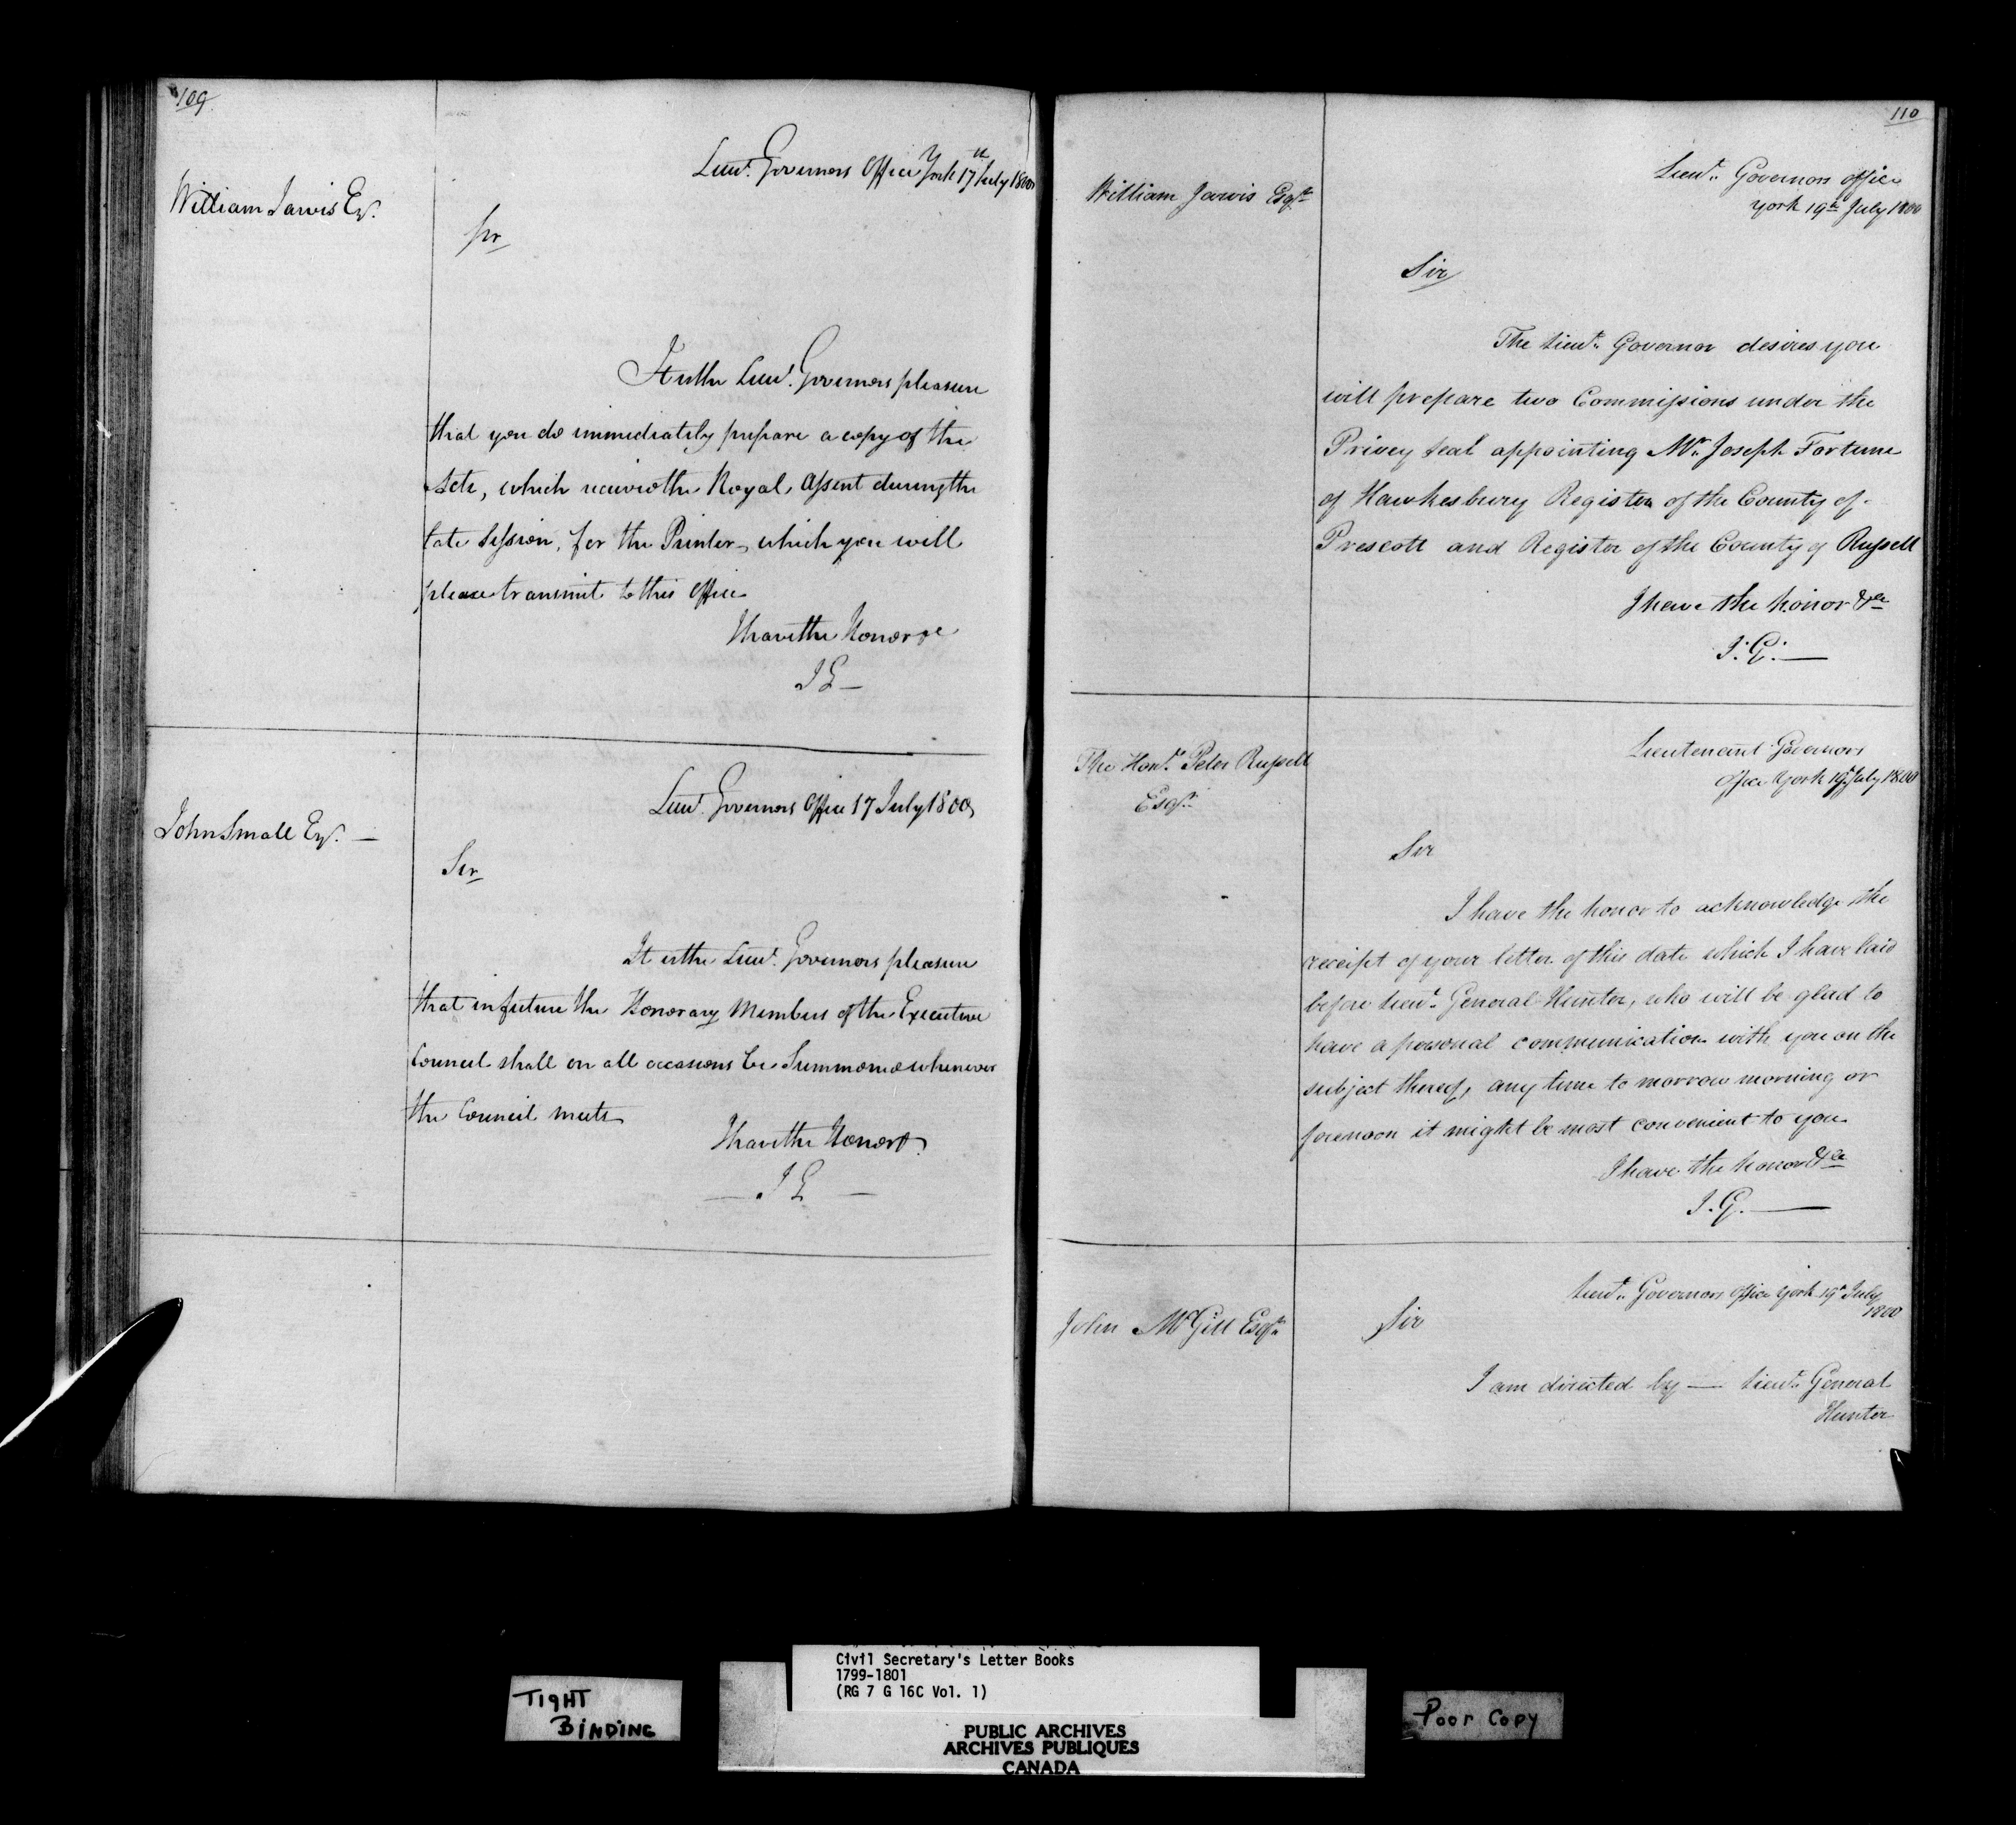 109
William Jarvis Esqr.
Lieut. Governors Office York 17th July 1800
Sir
It is the Lieut. Governors pleasure
that you do immediately prepare a copy of the
Acts, which received the Royal Assent during the
late Session, for the Printer, which you will
please transmit to this Office
I have the Honor &c
J G —
John Small Esqr. —
Lieut. Governors Office 17 July 1800
Sir
It is the Lieut. Governors pleasure
that in future the Honorary Members of the Executive
Council shall on all occasions be Summoned whenever
the Council meets
I have the Honor &c
— J G —
110
William Jarvis Esqre
Lieut. Governors office
York 19th July 1800
Sir
The Lieut. Governor desires you
will prepare two Commissions under the
Privey seal appointing Mr. Joseph Fortune
of Hawkesbury Register of the County of
Prescott and Register of the County of Russell
I have the honor &ca
J. G. —
The Honl. Peter Russell
Esqr.
Lieutenant Governors
Office York 19th July 1800
Sir
I have the honor to acknowledge the
receipt of your letter of this date which I have laid
before Lieut. General Hunter, who will be glad to
have a personal communication with you on the
subject thereof, any time to morrow morning or
forenoon it might be most convenient to you
I have the honor &ca
J. G. —
John McGill Esqr.
Lieut. Governors Office York 19th July
1800
Sir
I am directed by — Lieut. General
Hunter
Civil Secretary's Letter Books
1799-1801
(RG 7 G 16C Vol. 1)
TIGHT
BINDING
PUBLIC ARCHIVES
ARCHIVES PUBLIQUES
CANADA
Poor Copy